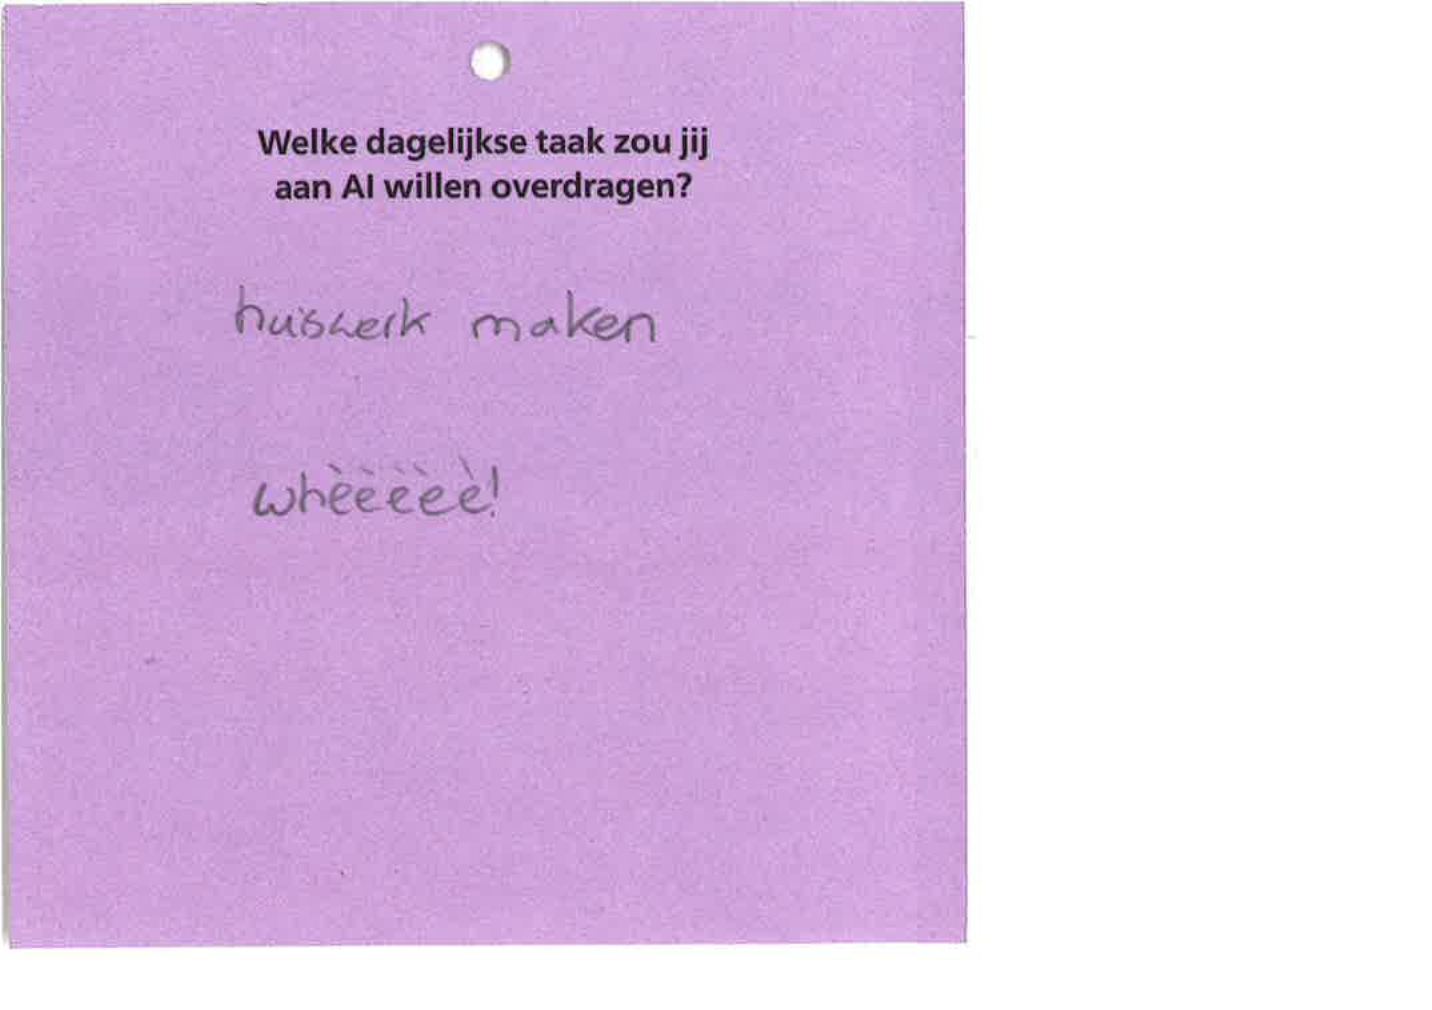 Welke dagelijkse taak zou jij
aan AI willen overdragen?
huiswerk maken
whèèèèè!